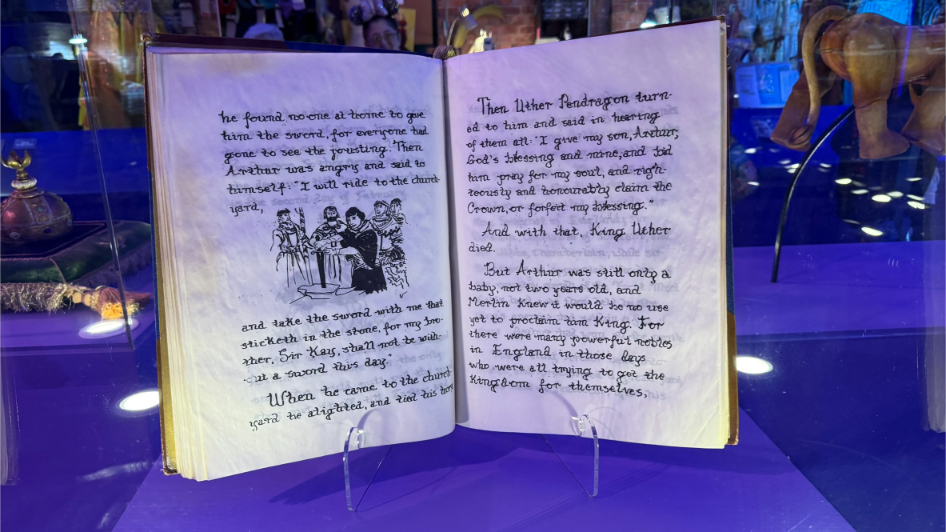 he found no one at home to give
him the sword, for everyone had
gone to see the jousting. Then
Arthur was angry and said to
himself: "I will ride to the church-
yard,
and take the sword with me that
sticketh in the stone, for my bro-
ther, Sir Kay, shall not be with-
out a sword this day."
When he came to the church
yard he alighted, and tied his horse
Then Uther Pendragon turn-
ed to him and said in hearing
of them all: "I give my son, Arthur,
God's blessing and mine, and bid
him pray for my soul, and righ-
teously and honourably claim the
Crown, or forfeit my blessing."
And with that, King Uther
died.
But Arthur was still only a
baby, not two years old, and
Merlin knew it would be no use
yet to proclaim him King. For
there were many powerful nobles
in England in those days
who were all trying to get the
Kingdom for themselves,